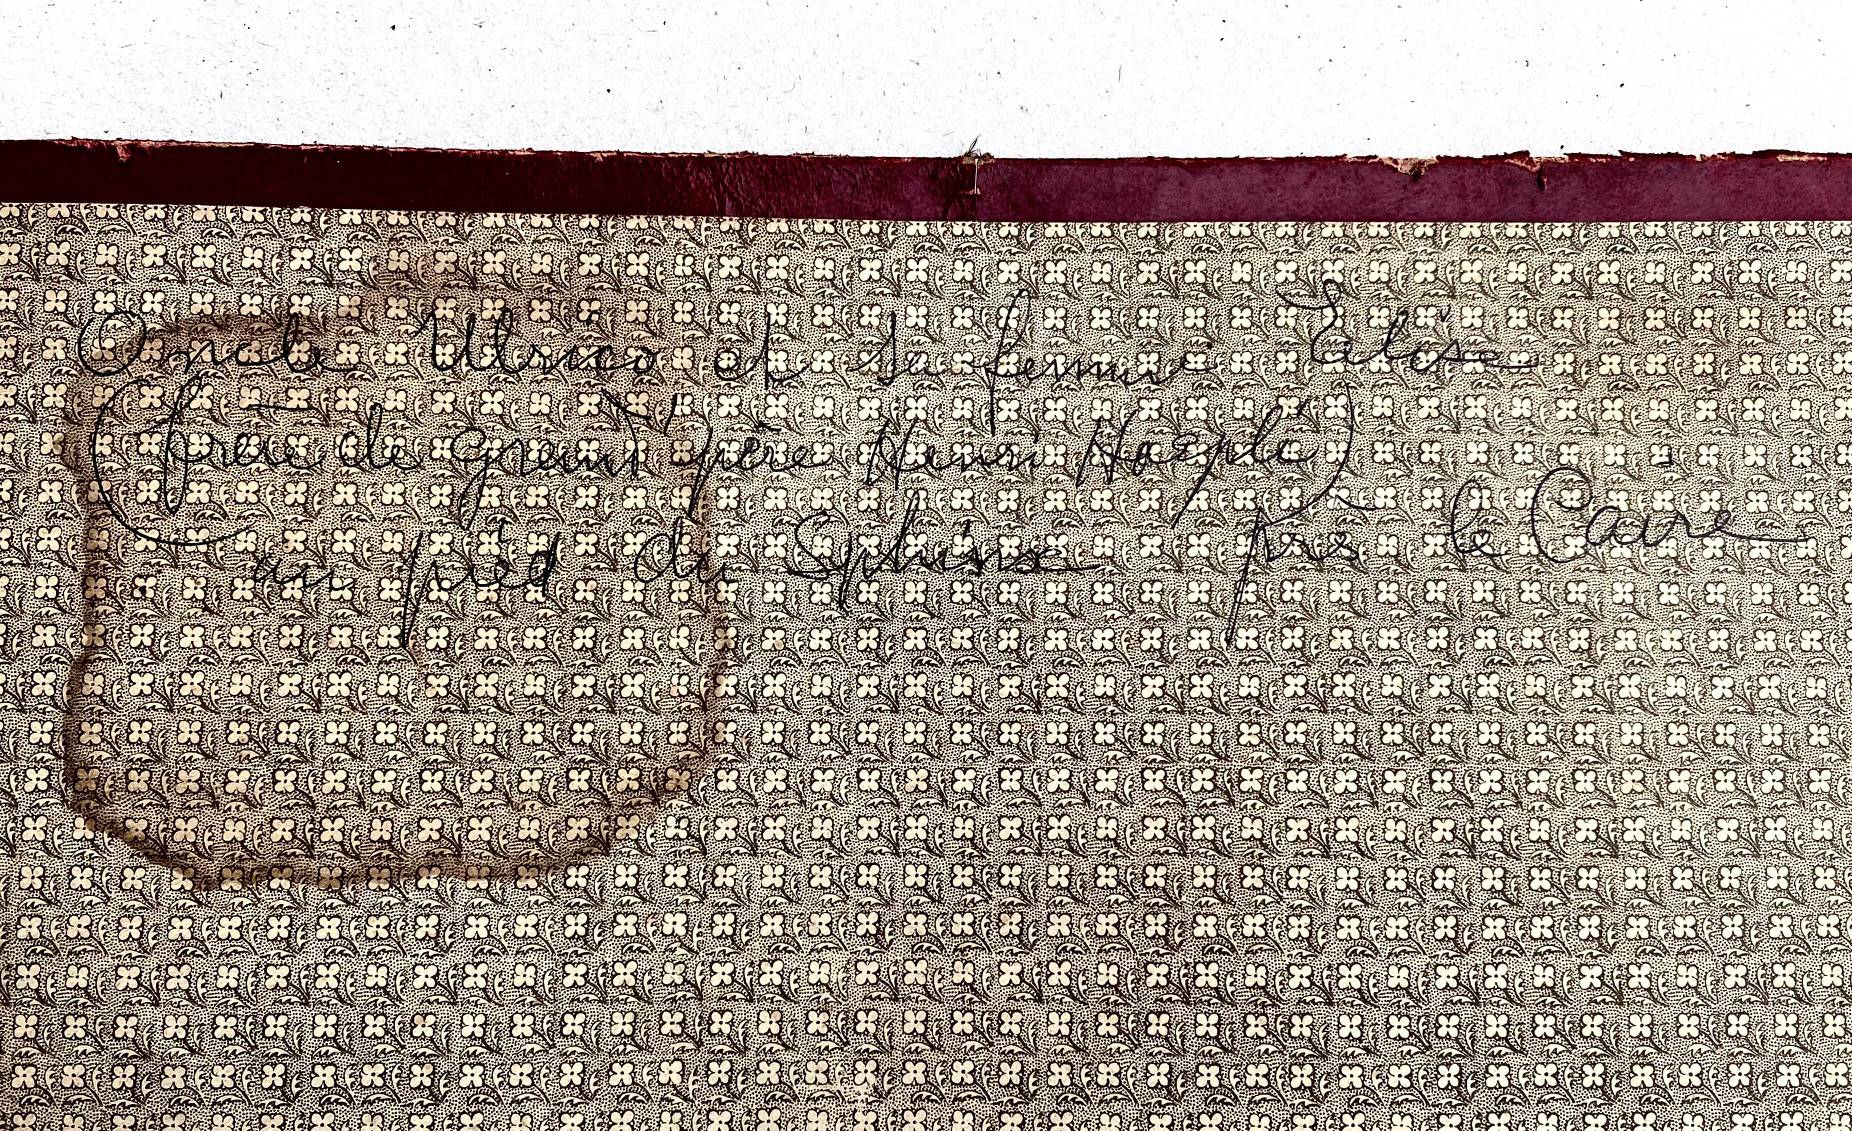 Oncle Ulrico et sa femme Elise
(frère de grand'père Henri Hoepli)
au pied du Sphinx près le Caire